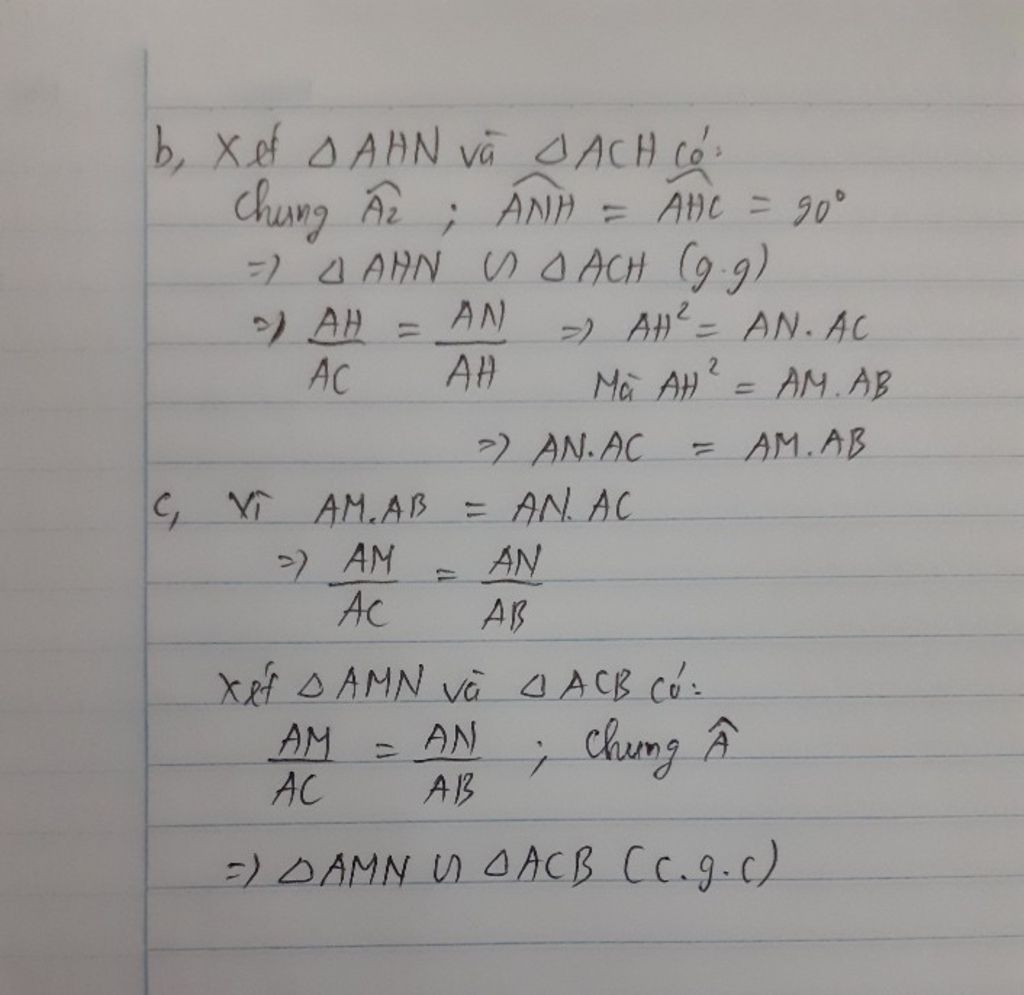 b, Xét △AHN và △ACH có:
Chung Â2 ; \widehat{ANH} = \widehat{AHC} = 90°
=> △AHN ∽ △ACH (g.g)
=> AH/AC = AN/AH => AH² = AN.AC
Mà AH² = AM.AB
=> AN.AC = AM.AB
c, Vì AM.AB = AN.AC
=> AM/AC = AN/AB
Xét △AMN và △ACB có:
AM/AC = AN/AB ; Chung Â
=> △AMN ∽ △ACB (c.g.c)